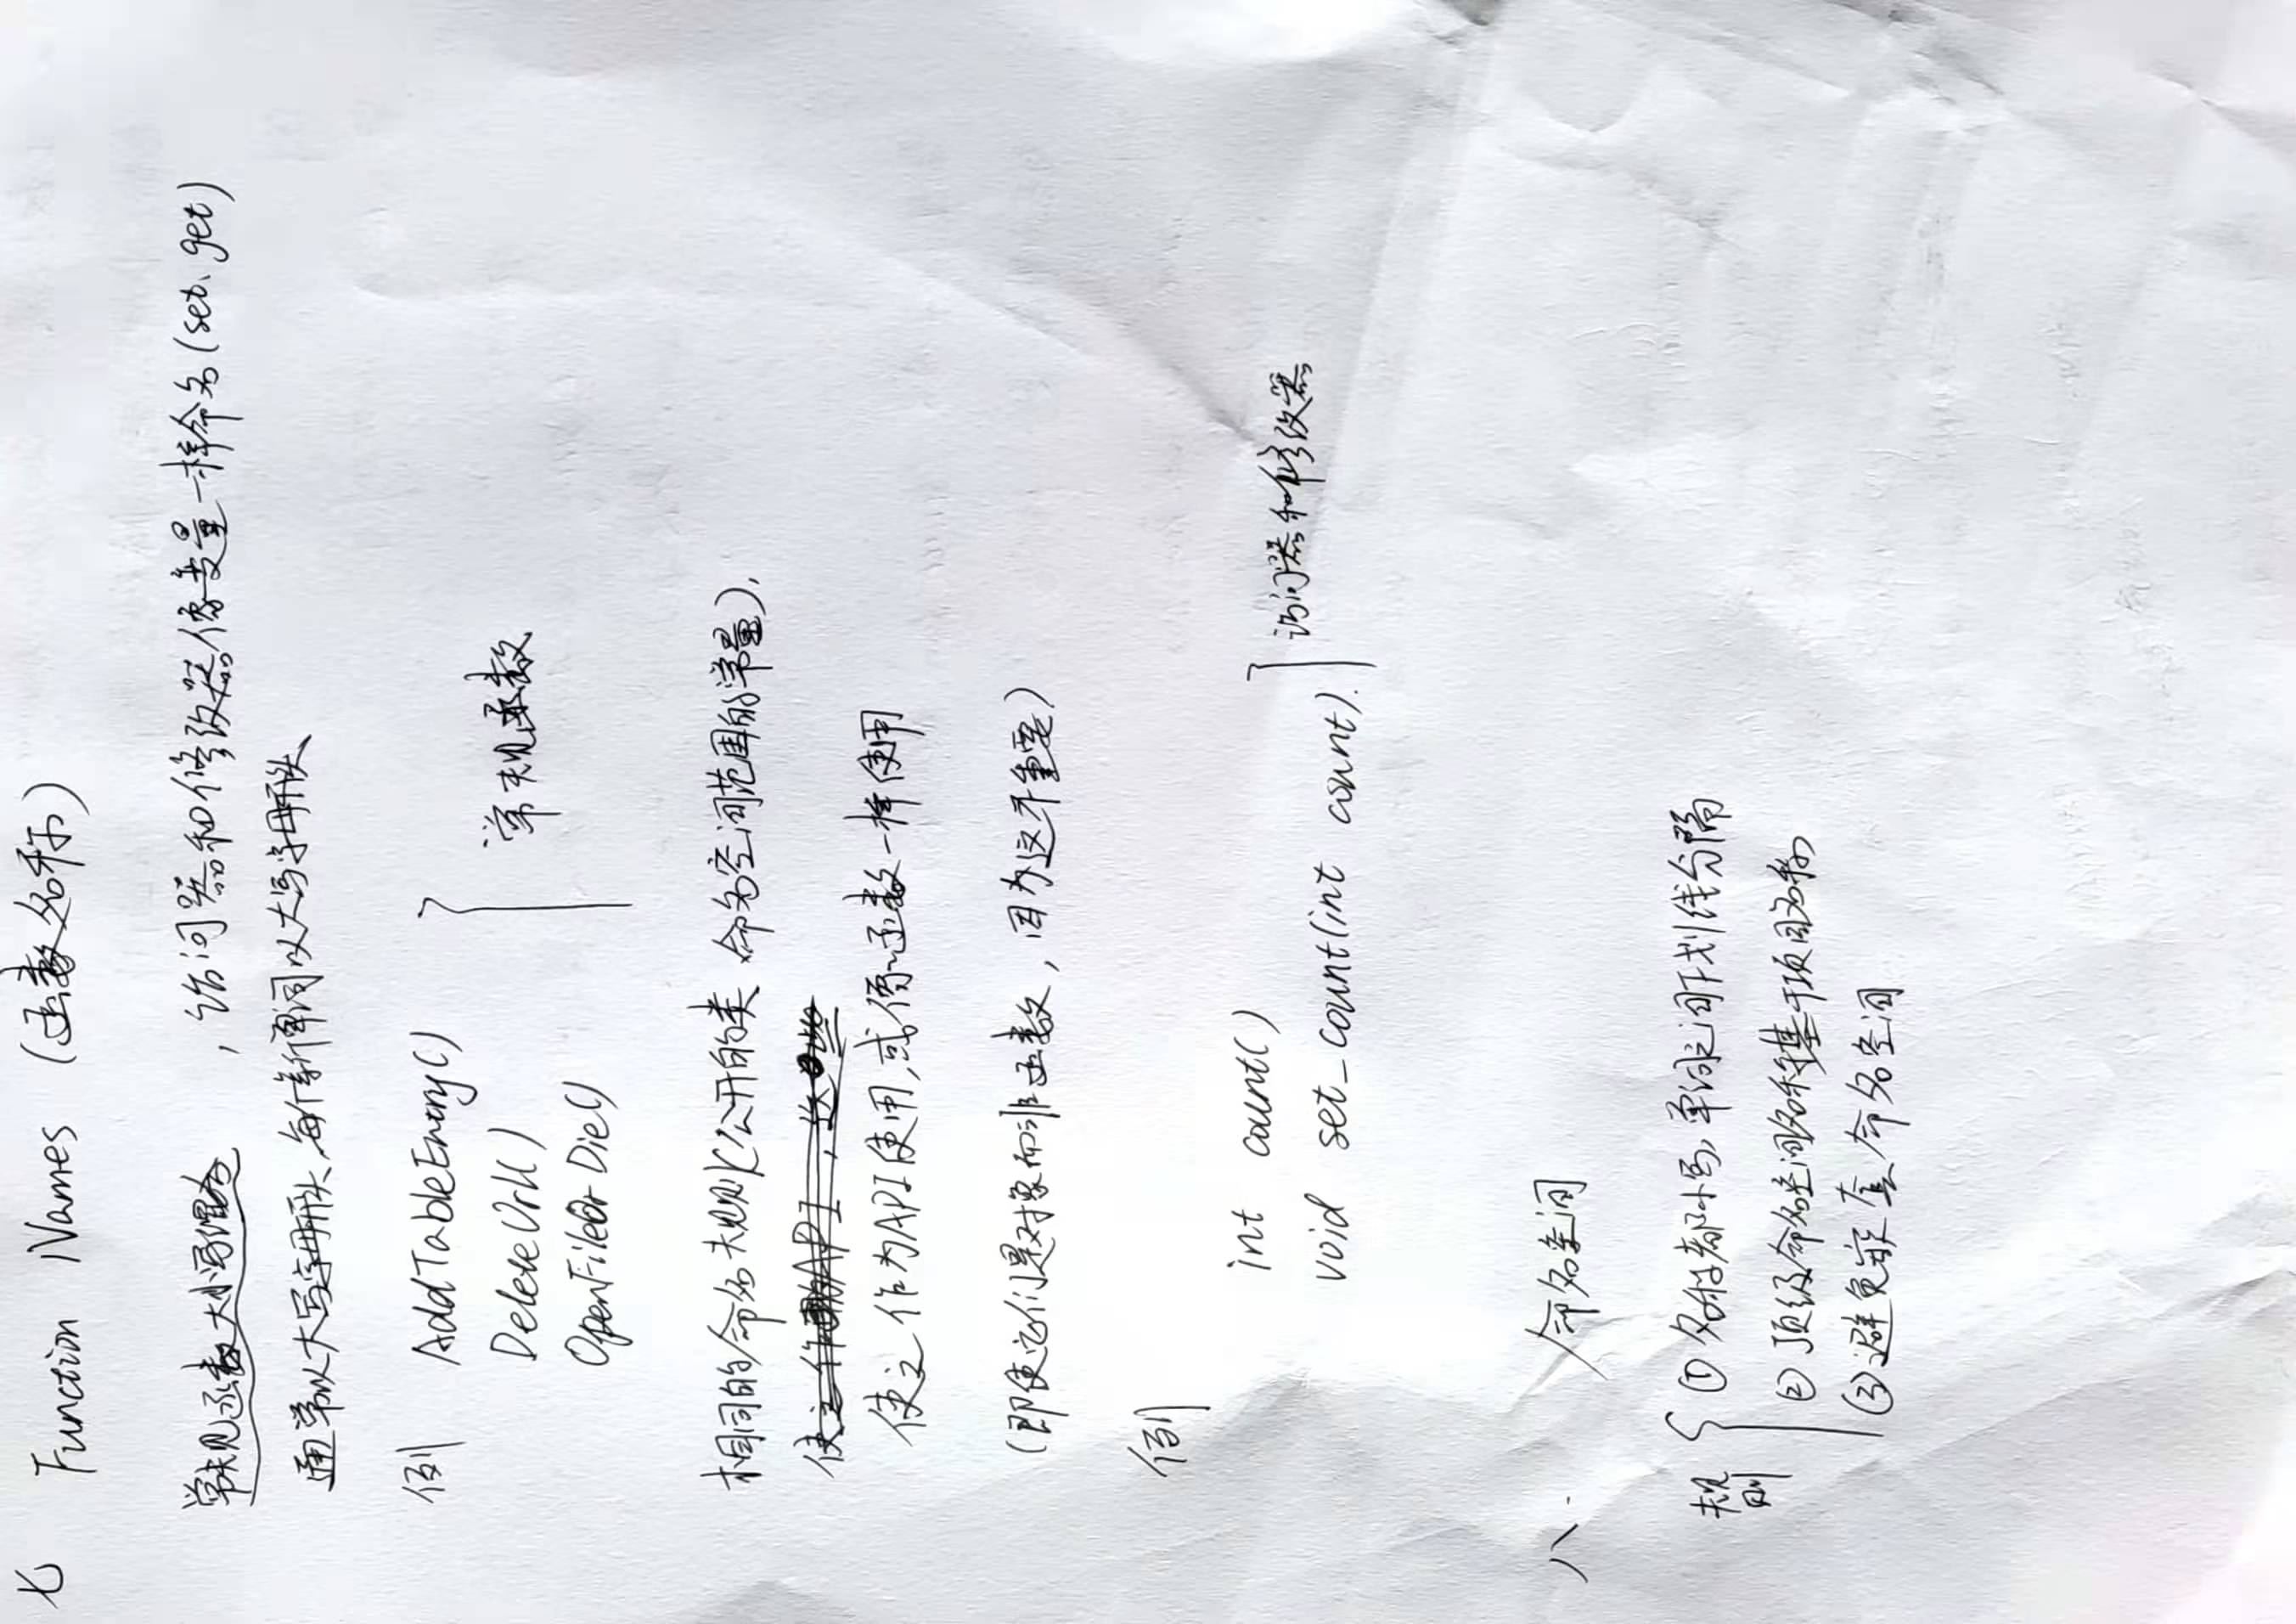 七 Function Names (函数名称)
常规函数大小写混合，访问器和修改器像变量一样命名(set、get)
通常以大写字母开头、每个新单词以大写字母开头
例 AddTableEnery()
DeleteUrl() } 常规函数
OpenFileOrDie()
相同的命名规则(公开的类、命名空间范围的常量),
使之作为API使用,或像函数一样使用
(即使它们是对象而非函数，因为这不重要)
例 int count()
void set_count(int count). } 访问器和修改器
八、命名空间
规则 { ① 名称都小写，单词之间下划线分隔
② 顶级命名空间名称基于项目名称
③ 避免嵌套命名空间